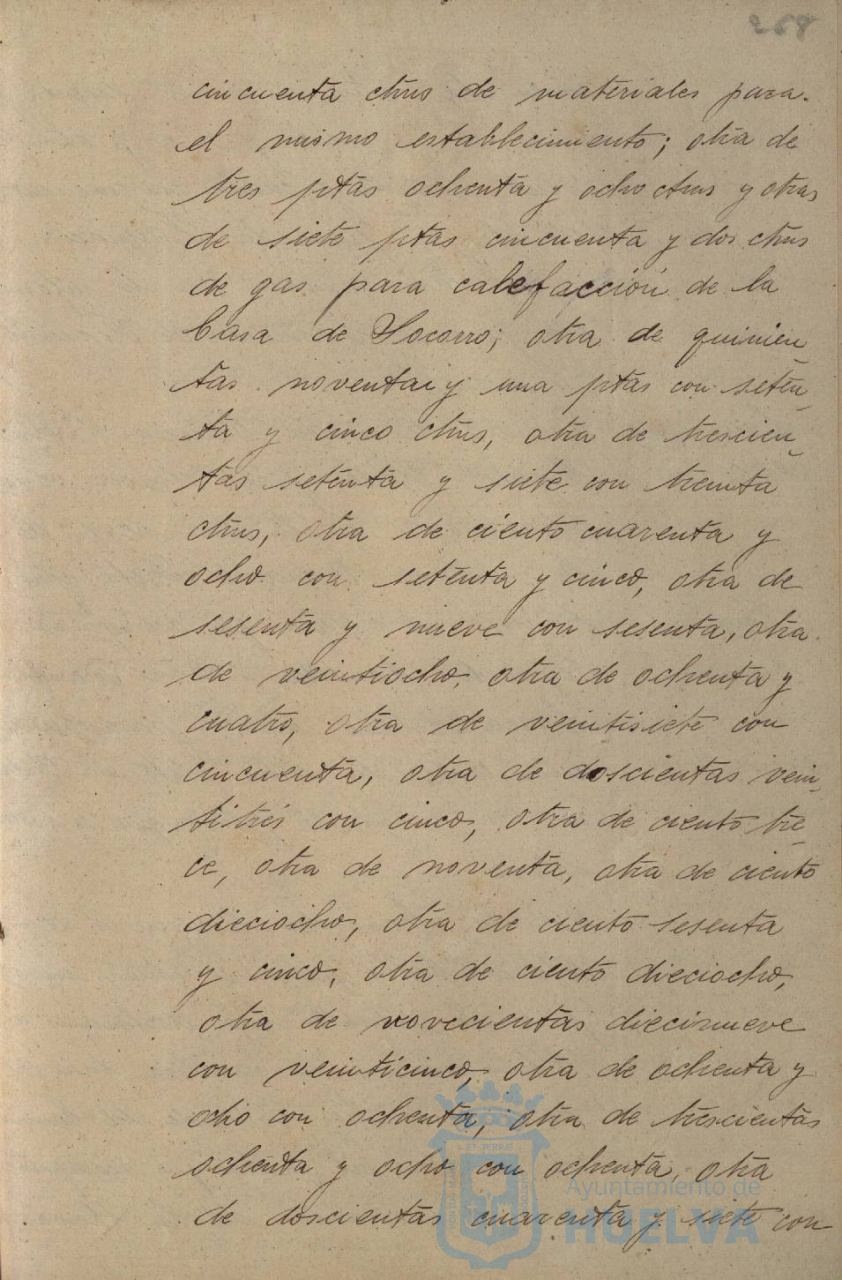 268
cincuenta ctms de materiales para
el mismo establecimiento; otra de
tres ptas ochenta y ocho ctms y otras
de siete ptas cincuenta y dos ctms
de gas para calefacción de la
Casa de Socorro; otra de quinien-
tas noventa y una ptas con seten-
ta y cinco ctms, otra de trescien-
tas setenta y siete con treinta
ctms, otra de ciento cuarenta y
ocho con setenta y cinco, otra de
sesenta y nueve con sesenta, otra
de veintiocho, otra de ochenta y
cuatro, otra de veintisiete con
cincuenta, otra de doscientas vein-
titrés con cinco, otra de ciento tre-
ce, otra de noventa, otra de ciento
dieciocho, otra de ciento sesenta
y cinco, otra de ciento dieciocho,
otra de novecientas diecinueve
con veinticinco, otra de ochenta y
ocho con ochenta, otra de trescientas
ochenta y ocho con ochenta, otra
de doscientas cuarenta y siete con
Ayuntamiento de
HUELVA